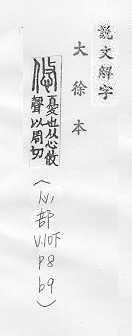 説文解字
大徐本
悠
憂也从心攸
聲以周切
(心部 V.10下 P8 b9)